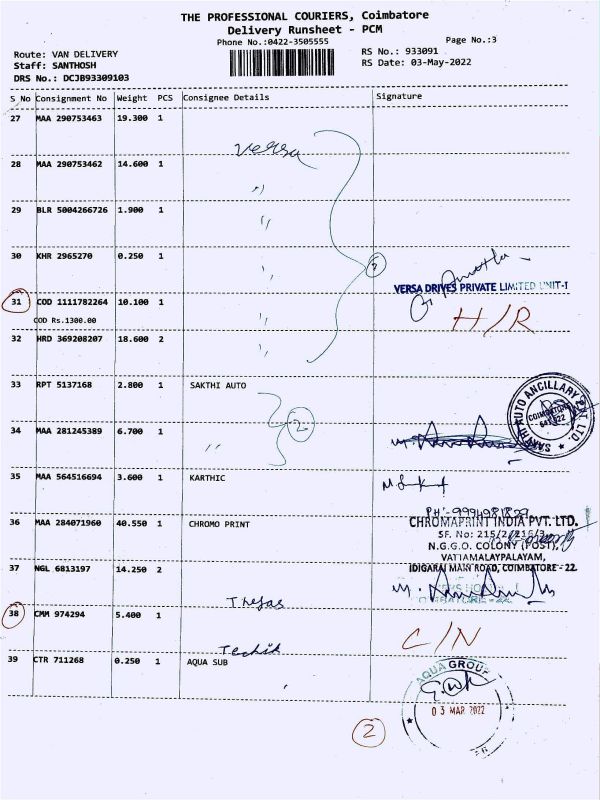 THE PROFESSIONAL COURIERS, Coimbatore
Delivery Runsheet - PCM
Phone No.:0422-3505555
Page No.:3
Route: VAN DELIVERY
RS No.: 933091
Staff: SANTHOSH
RS Date: 03-May-2022
DRS No.: DCJB93309103
S No Consignment No Weight PCS Consignee Details Signature
27 MAA 290753463 19.300 1
Versa
28 MAA 290753462 14.600 1 ,,
29 BLR 5004266726 1.900 1 ,,
30 KHR 2965270 0.250 1 ,,
VERSA DRIVES PRIVATE LIMITED UNIT-I
31 COD 1111782264 10.100 1 ,,
COD Rs.1300.00
H/R
32 HRD 369208207 18.600 2 ,,
33 RPT 5137168 2.800 1 SAKTHI AUTO
2
SAKTHI AUTO ANCILLARY PVT. LTD.
COIMBATORE
34 MAA 281245389 6.700 1 ,,
35 MAA 564516694 3.600 1 KARTHIC
PH:- 9994981829
36 MAA 284071960 40.550 1 CHROMO PRINT
CHROMAPRINT INDIA PVT. LTD.
SF. No: 215/2/216/3
N.G.G.O. COLONY (POST),
VATTAMALAYPALAYAM,
IDIGARAI MAIN ROAD, COIMBATORE - 22.
37 NGL 6813197 14.250 2
Thejas
38 CMM 974294 5.400 1
C/N
Techik
39 CTR 711268 0.250 1 AQUA SUB
AQUA GROUP
03 MAR 2022
2